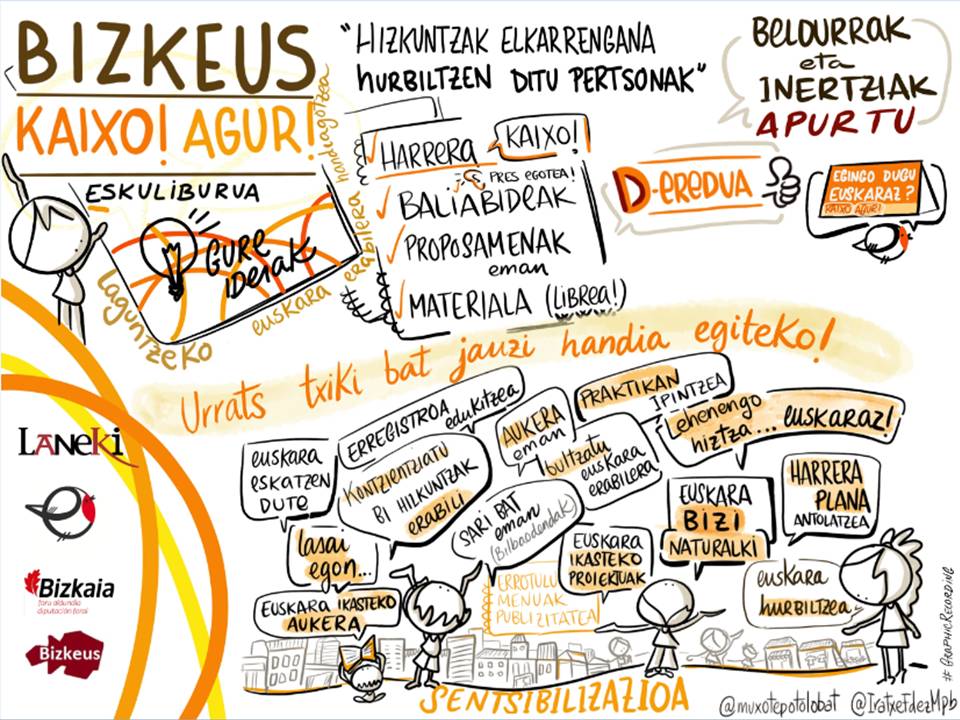 BIZKEUS
KAIXO! AGUR!
ESKULIBURUA
GURE
IDEIAK
Laguntzeko
euskara
erabilera
handiagotzea
"HIZKUNTZAK ELKARRENGANA
HURBILTZEN DITU PERTSONAK"
BELDURRAK
eta
INERTZIAK
APURTU
HARRERA
KAIXO!
PREST EGOTEA!
BALIABIDEAK
PROPOSAMENAK
eman
MATERIALA (LIBREA!)
D-EREDUA
EGINGO DUGU
EUSKARAZ?
KAIXO AGUR!
Urrats txiki bat jauzi handia egiteko!
LANEKI
Bizkaia
foru aldundia
diputación foral
Bizkeus
euskara
ESKATZEN
DUTE
ERREGISTROA edukitzea
KONTZIENTZIATU
BI HIZKUNTZAK
ERABILI
AUKERA
eman
PRAKTIKAN
IPINTZEA
bultzatu
euskara
ERABILERA
ehenengo
hiztza... euskaraz!
lasai
egon...
SARI BAT
eman
(Bilbaodendak)
EUSKARA
BIZI
NATURALKI
HARRERA
PLANA
ANTOLATZEA
EUSKARA
IKASTEKO
PROIEKTUAK
EUSKARA IKASTEKO
AUKERA
ERROTULU
MENUAK
PUBLIZITATEA
euskara
hurbiltzea
SENTSIBILIZAZIOA
@muxotepotolobat @IratxetdezMpb
# GRAPHICRECORDING